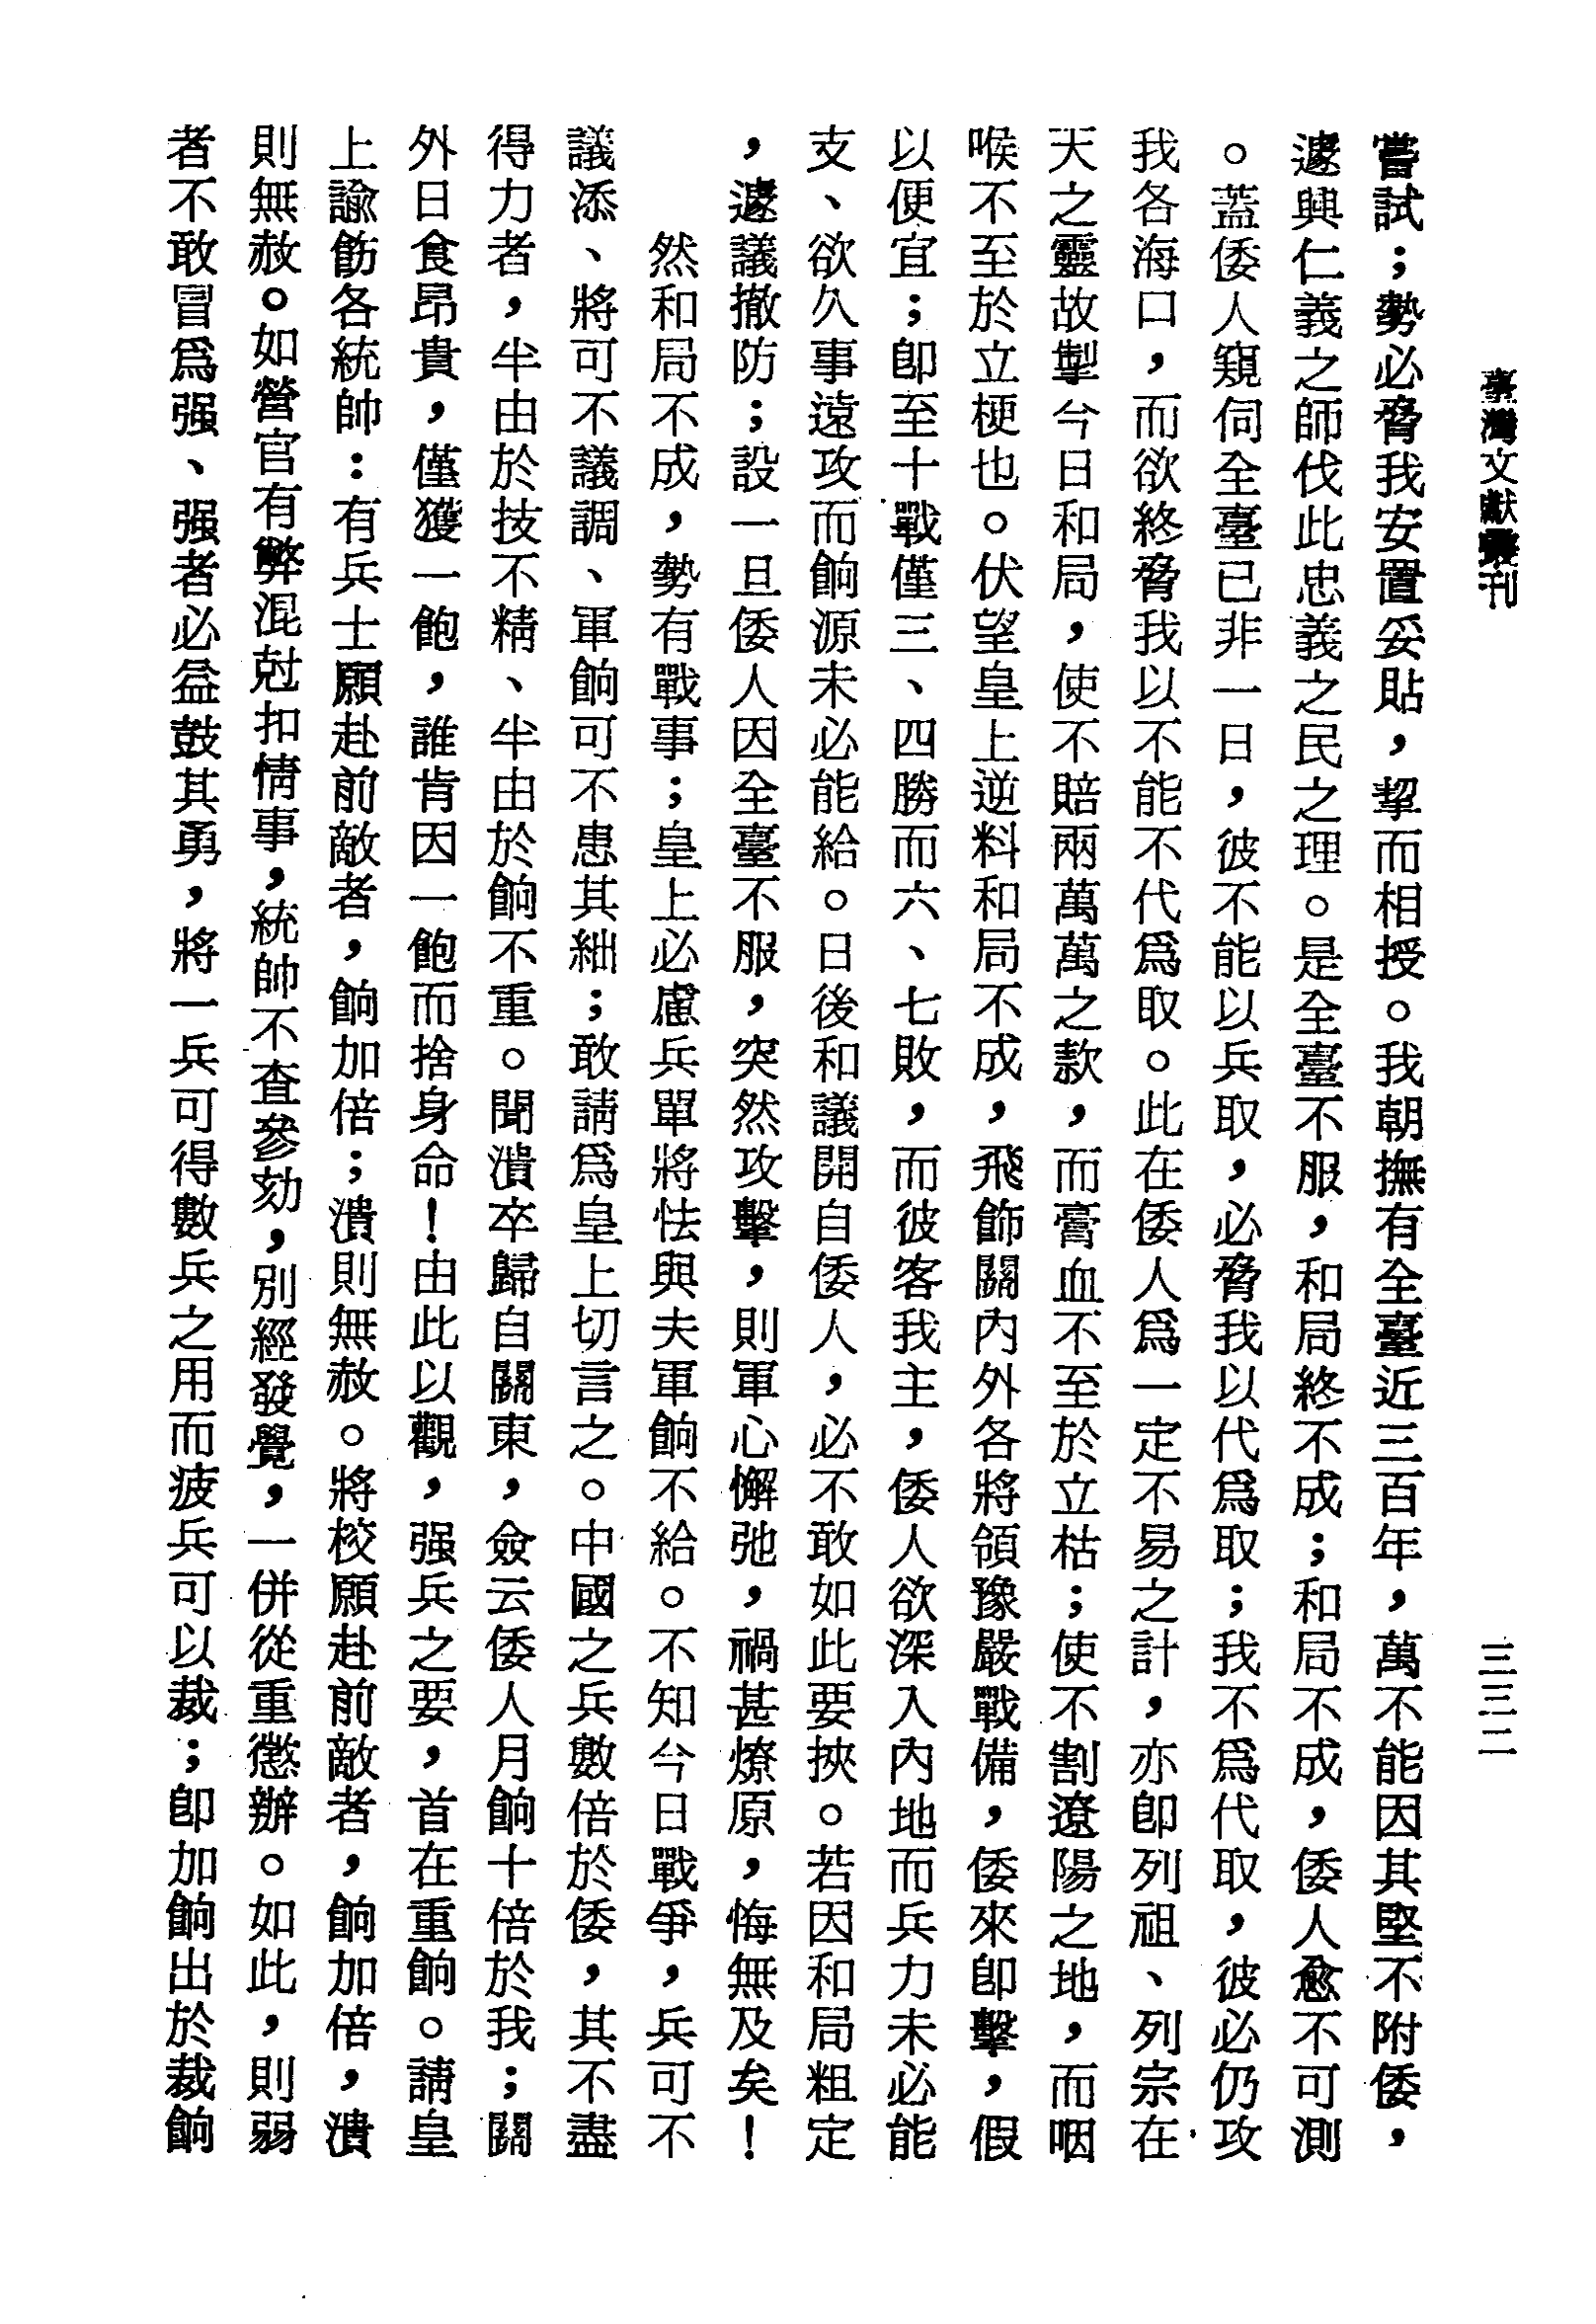 臺灣文獻叢刊
三三二
嘗試；勢必脅我安置妥貼，挈而相授。我朝撫有全臺近三百年，萬不能因其堅不附倭，
遽興仁義之師伐此忠義之民之理。是全臺不服，和局終不成；和局不成，倭人愈不可測
。蓋倭人窺伺全臺已非一日，彼不能以兵取，必脅我以代爲取；我不爲代取，彼必仍攻
我各海口，而欲終脅我以不能不代爲取。此在倭人爲一定不易之計，亦卽列祖、列宗在
天之靈故掣今日和局，使不賠兩萬萬之款，而膏血不至於立枯；使不割遼陽之地，而咽
喉不至於立梗也。伏望皇上逆料和局不成，飛飾關內外各將領豫嚴戰備，倭來卽擊，假
以便宜；卽至十戰僅三、四勝而六、七敗，而彼客我主，倭人欲深入內地而兵力未必能
支、欲久事遠攻而餉源未必能給。日後和議開自倭人，必不敢如此要挾。若因和局粗定
，遽議撤防；設一旦倭人因全臺不服，突然攻擊，則軍心懈弛，禍甚燎原，悔無及矣！
然和局不成，勢有戰事；皇上必慮兵單將怯與夫軍餉不給。不知今日戰爭，兵可不
議添、將可不議調、軍餉可不患其絀；敢請爲皇上切言之。中國之兵數倍於倭，其不盡
得力者，半由於技不精、半由於餉不重。聞潰卒歸自關東，僉云倭人月餉十倍於我；關
外日食昂貴，僅獲一飽，誰肯因一飽而捨身命！由此以觀，强兵之要，首在重餉。請皇
上諭飭各統帥：有兵士願赴前敵者，餉加倍；潰則無赦。將校願赴前敵者，餉加倍，潰
則無赦。如營官有弊混尅扣情事，統帥不查參劾，別經發覺，一併從重懲辦。如此，則弱
者不敢冒爲强、强者必益鼓其勇，將一兵可得數兵之用而疲兵可以裁；卽加餉出於裁餉